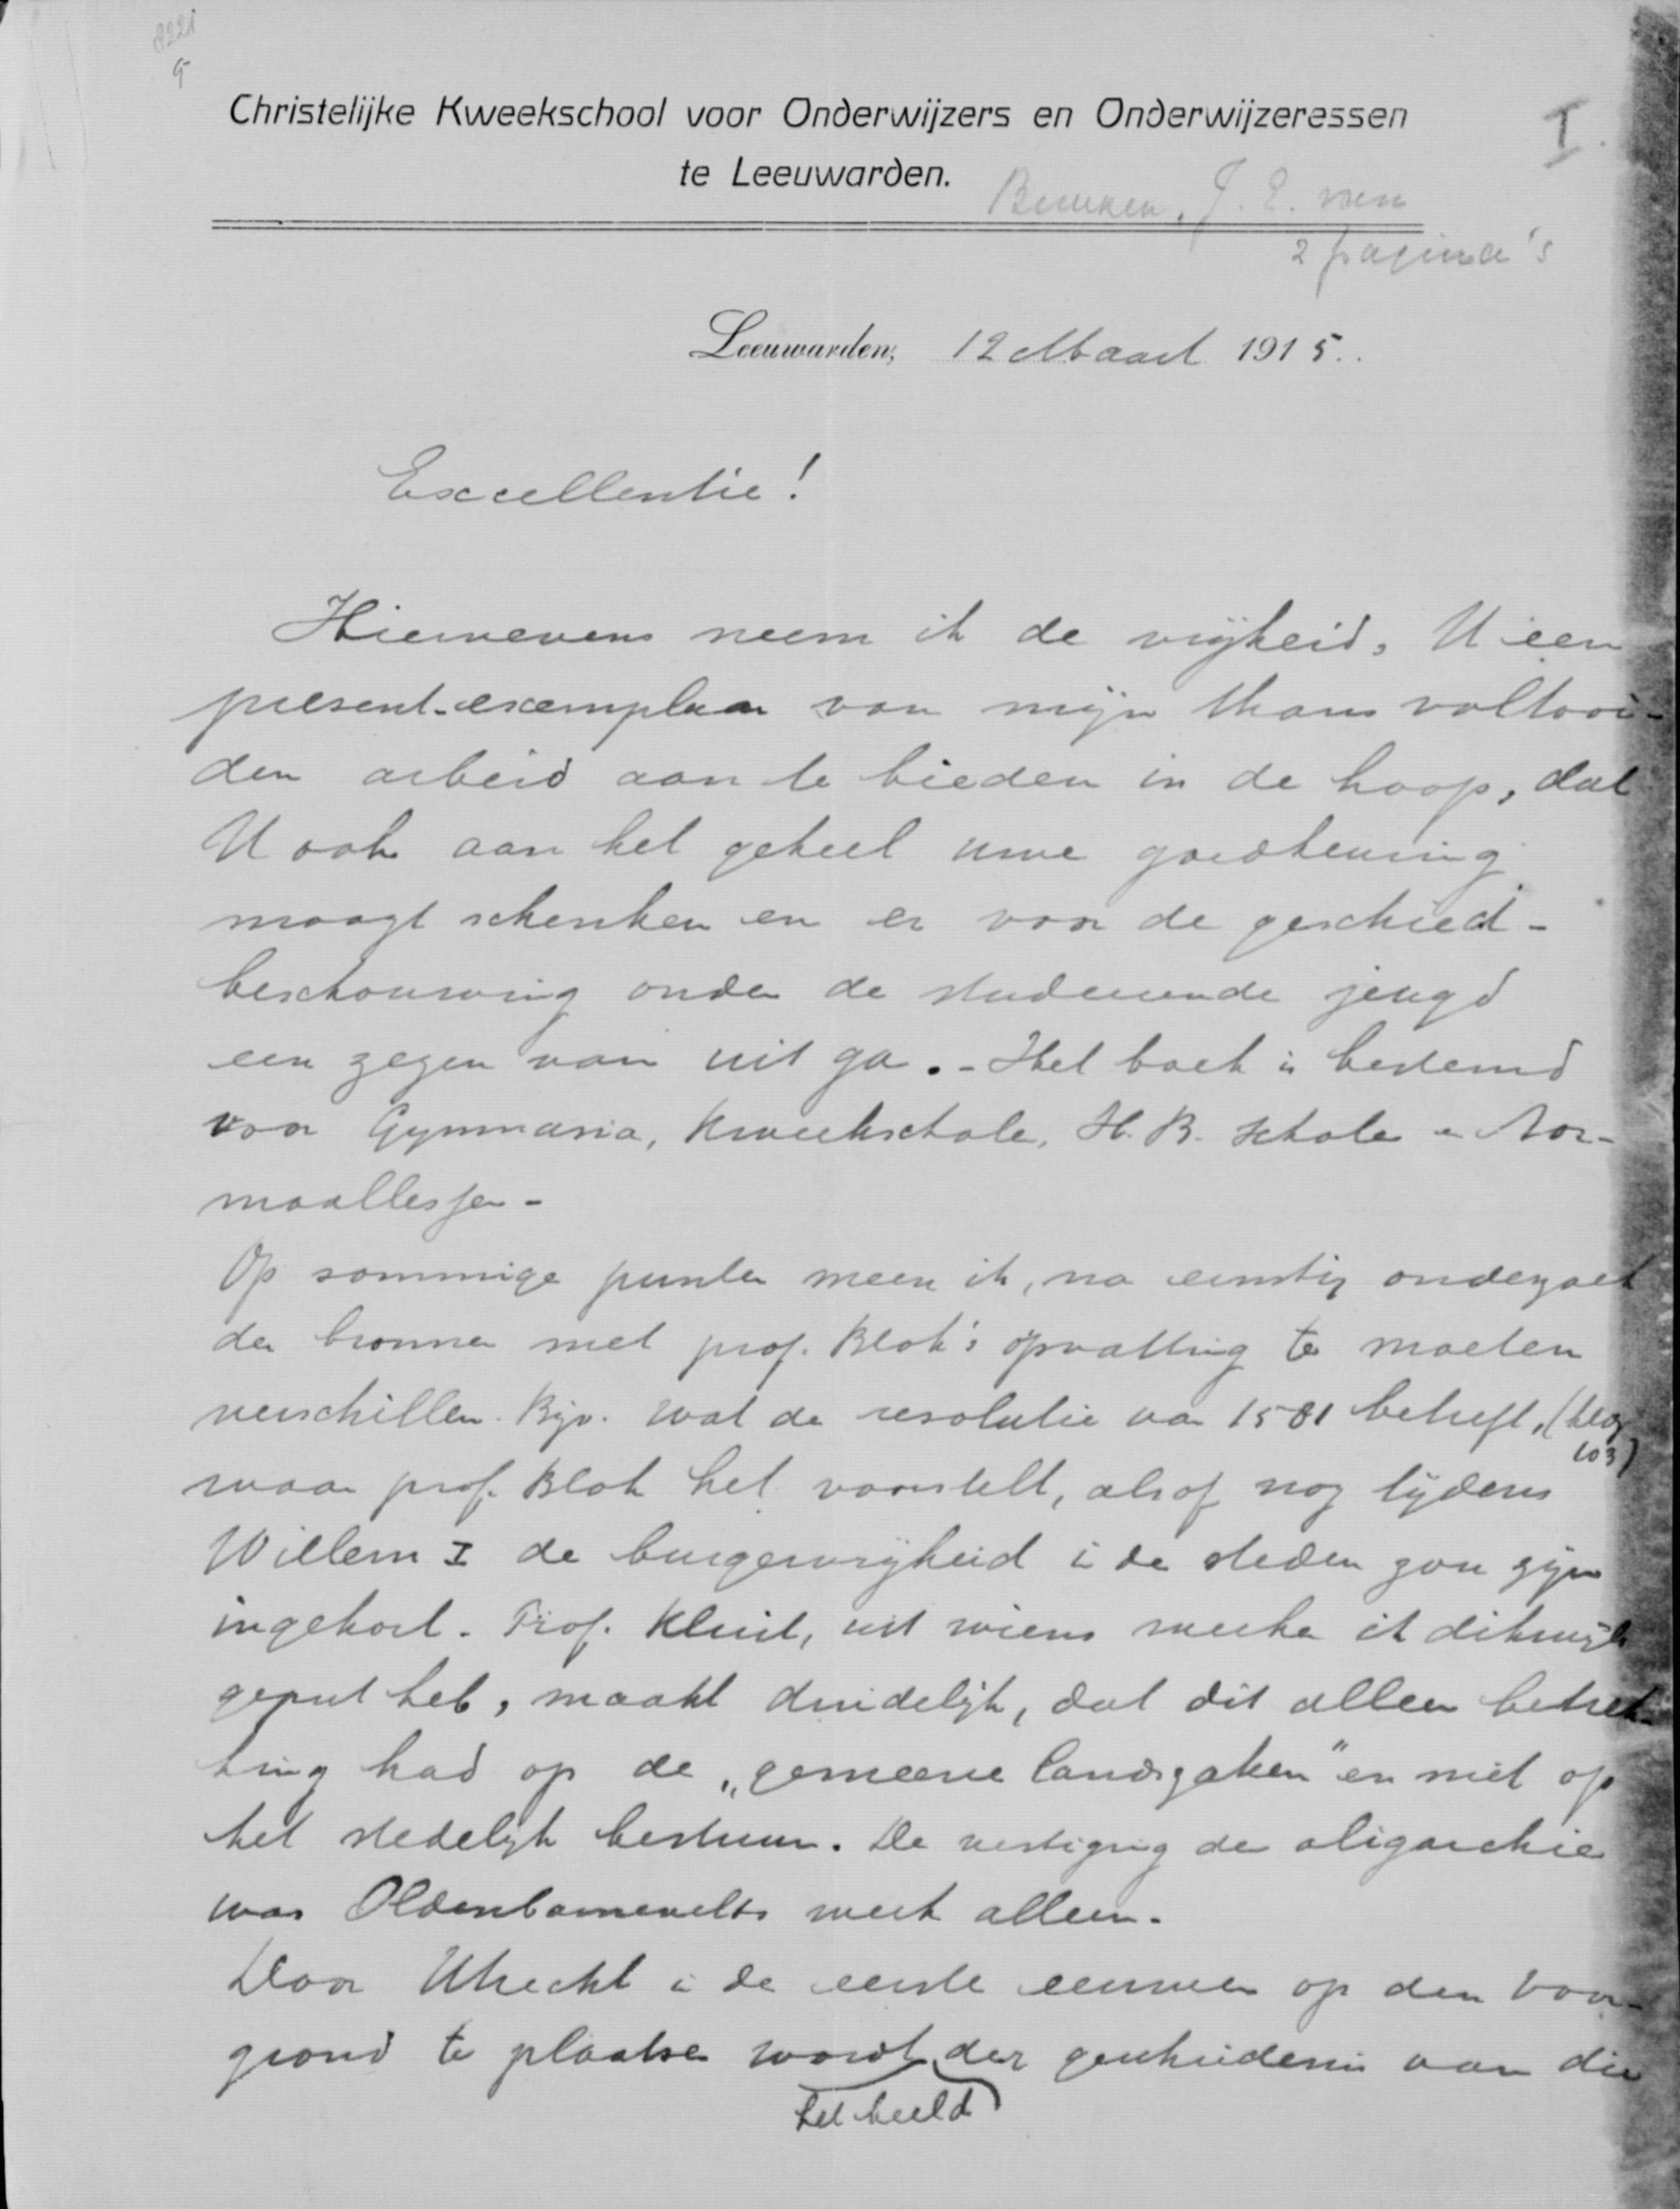 8221
9
Christelijke Kweekschool voor Onderwijzers en Onderwijzeressen
I.
te Leeuwarden.
J. E. van
2 pagina's
Leeuwarden, 12 Maart 1915.
Excellentie!
Hiernevens neem ik de vrijheid, U een
present-exemplaar van mijn thans voltooi-
den arbeid aan te bieden in de hoop, dat
U ook aan het geheel uwe goedkeuring
moogt schenken en er voor de geschied-
beschouwing onder de studeerende jeugd
een zegen van uit ga. - Het boek is bestemd
voor Gymnasia, Kweekschole, H.B. Schole en Nor-
maallessen -
Op sommige punten meen ik, na ernstig onderzoek
der bronnen met prof. Blok's opvatting te moeten
verschillen. Bijv. wat de resolutie van 1581 betreft, (blz
103)
waar prof. Blok het voorstelt, alsof nog tijdens
Willem I de burgervrijheid in de steden zou zijn
ingekort. Prof. Kluit, uit wiens werken ik dikwijls
geput heb, maakt duidelijk, dat dit alleen betrek-
king had op de „gemeene landszaken" en niet op
het stedelijk bestuur. De vestiging der oligarchie
was Oldenbarnevelts werk alleen.
Door Utrecht in de eerste eeuwen op den voor-
grond te plaatsen wordt der geschiedenis van die
het beeld